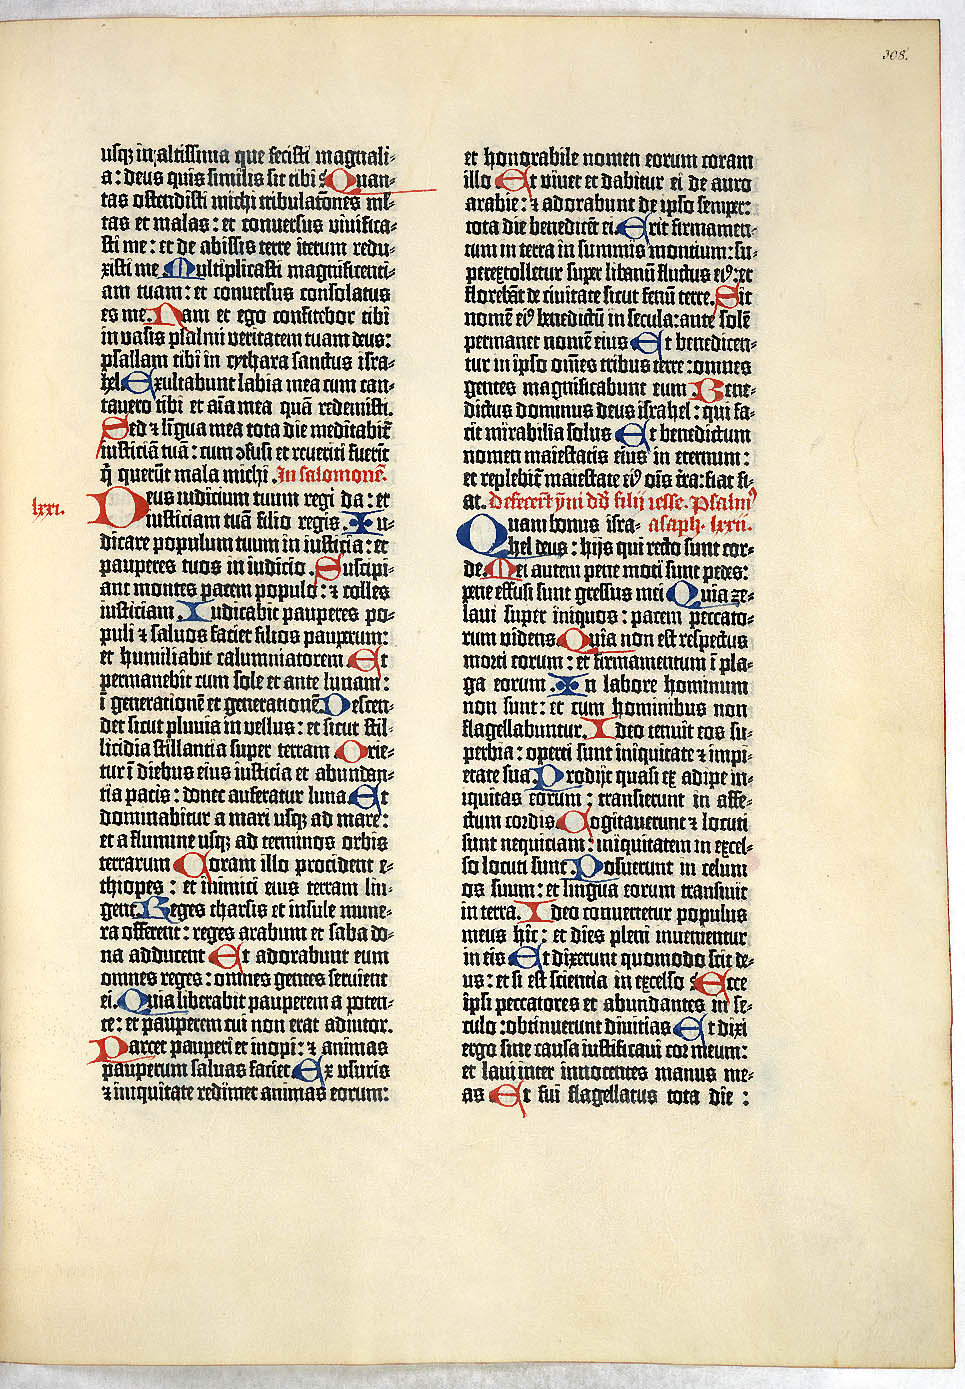 308.
usqȝ in altissima que fecisti magnali-
a: deus quis similis sit tibi? Quan-
tas ostendisti michi tribulatōnes ml̄-
tas et malas: et conversus vivifica-
sti me: et de abissis terre iterum redu-
xisti me Multiplicasti magnificenti-
am tuam: et conversus consolatus
es me. Nam et ego confitebor tibi
in vasis psalmi veritatem tuam deus:
psallam tibi in cythara sanctus isra-
hel Exultabunt labia mea cum can-
tavero tibi et aīa mea quā redemisti.
Sed ⁊ līgua mea tota die meditabit̄
iusticiā tuā: cum ɔfusi et reveriti fuerīt
q̄ querūt mala michi. In salomonē.
lxxi.
Deus iudicium tuum regi da: et
iusticiam tuā filio regis. Iu-
dicare populum tuum in iusticia: et
pauperes tuos in iudicio. Suscipi-
ant montes pacem populo: ⁊ colles
iusticiam. Iudicabit pauperes po-
puli ⁊ salvos faciet filios pauperum:
et humiliabit calumniatorem Et
permanebit cum sole et ante lunam:
ī generationē et generationē Descen-
det sicut pluvia in vellus: et sicut stil-
licidia stillantia super terram Orie-
tur ī diebus eius iusticia et abundan-
tia pacis: donec auferatur luna. Et
dominabitur a mari usqȝ ad mare:
et a flumine usqȝ ad terminos orbis
terrarum Coram illo procident e-
thiopes: et inimici eius terram lin-
gent. Reges tharsis et insule mune-
ra offerent: reges arabum et saba do-
na adducent Et adorabunt eum
omnes reges: omnes gentes servient
ei. Quia liberabit pauperem a poten-
te: et pauperem cui non erat adiutor.
Parcet pauperi et inopi: ⁊ animas
pauperum salvas faciet Ex usuris
⁊ iniquitate redimet animas eorum:
et honorabile nomen eorum coram
illo Et vivet et dabitur ei de auro
arabie: ⁊ adorabunt de ipso semper:
tota die benedicēt ei. Erit firmamen-
tum in terra in summis montium: su-
perextolletur super libanū fructus eiꝰ: et
florebūt de civitate sicut fenū terre. Sit
nomē eiꝰ benedictū in secula: ante solē
permanet nomē eius Et benedicen-
tur in ipso om̄es tribus terre: omnes
gentes magnificabunt eum Bene-
dictus dominus deus israhel: qui fa-
cit mirabilia solus Et benedictum
nomen maiestatis eius in eternum:
et replebit̄ maiestate eiꝰ oīs t̄ra: fiat fi-
at. Defecerūt ȳni dd̄ filij iesse. Psalmꝰ
Quam bonus isra- asaph. lxxii.
hel deus: hijs qui recto sunt cor-
de. Mei autem pene moti sunt pedes:
pene effusi sunt gressus mei Quia ze-
lavi super iniquos: pacem peccato-
rum videns Quia non est respectus
morti eorum: et firmamentum ī pla-
ga eorum. In labore hominum
non sunt: et cum hominibus non
flagellabuntur. Ideo tenuit eos su-
perbia: operti sunt iniquitate ⁊ impi-
etate sua Prodijt quasi ex adipe in-
iquitas eorum: transierunt in affe-
ctum cordis Cogitaverunt ⁊ locuti
sunt nequiciam: iniquitatem in excel-
so locuti sunt. Posuerunt in celum
os suum: et lingua eorum transivit
in terra. Ideo convertetur populus
meus hīc: et dies pleni invenientur
in eis Et dixerunt quomodo scit de-
us: et si est scientia in excelso? Ecce
ipsi peccatores et abundantes in se-
culo: obtinuerunt divitias Et dixi
ergo sine causa iustificavi cor meum:
et lavi inter innocentes manus me-
as Et fui flagellatus tota die :